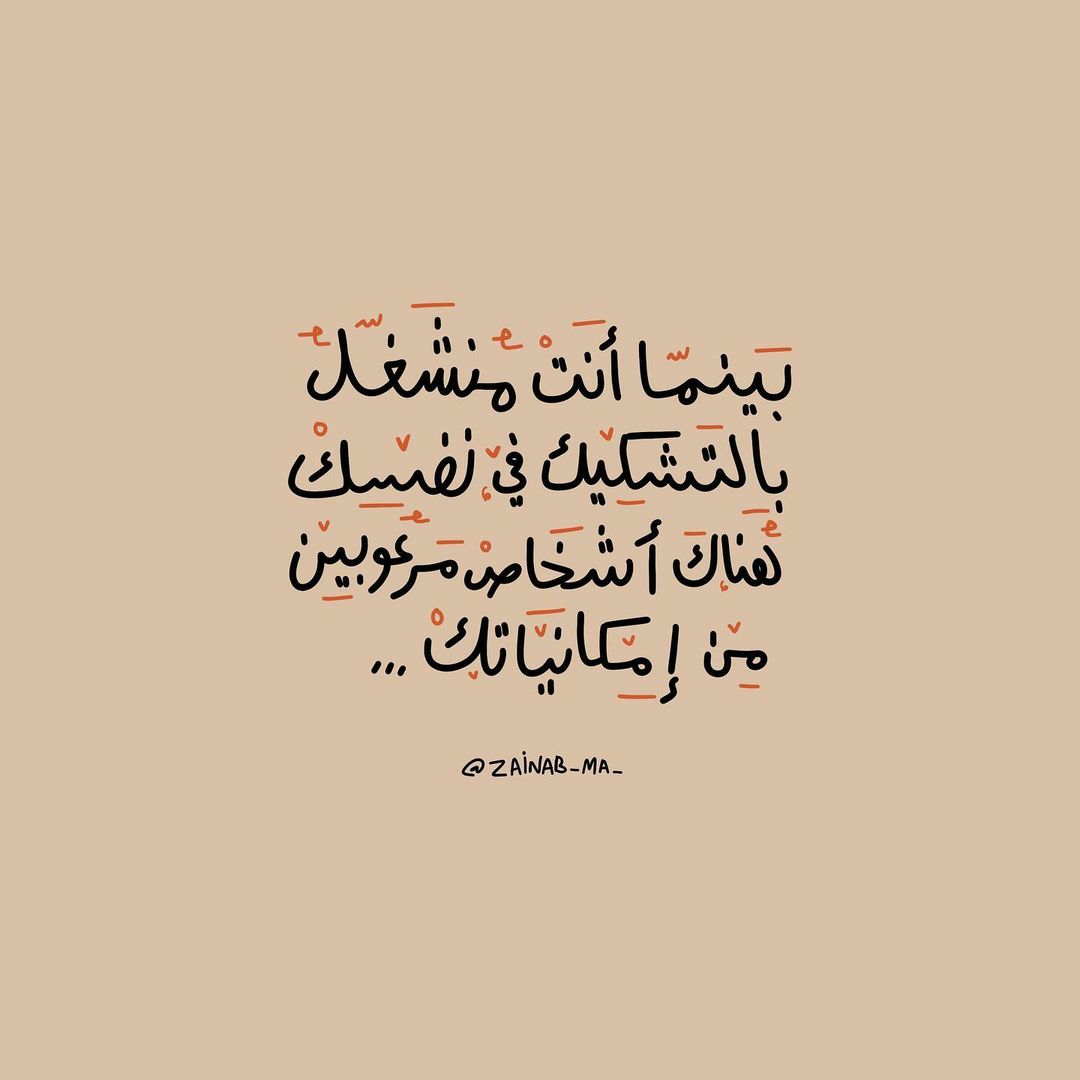 بينما أنت منشغل
بالتشكيك في نفسك
هناك أشخاص مرعوبين
من إمكانياتك ...
@ZAINAB_MA_